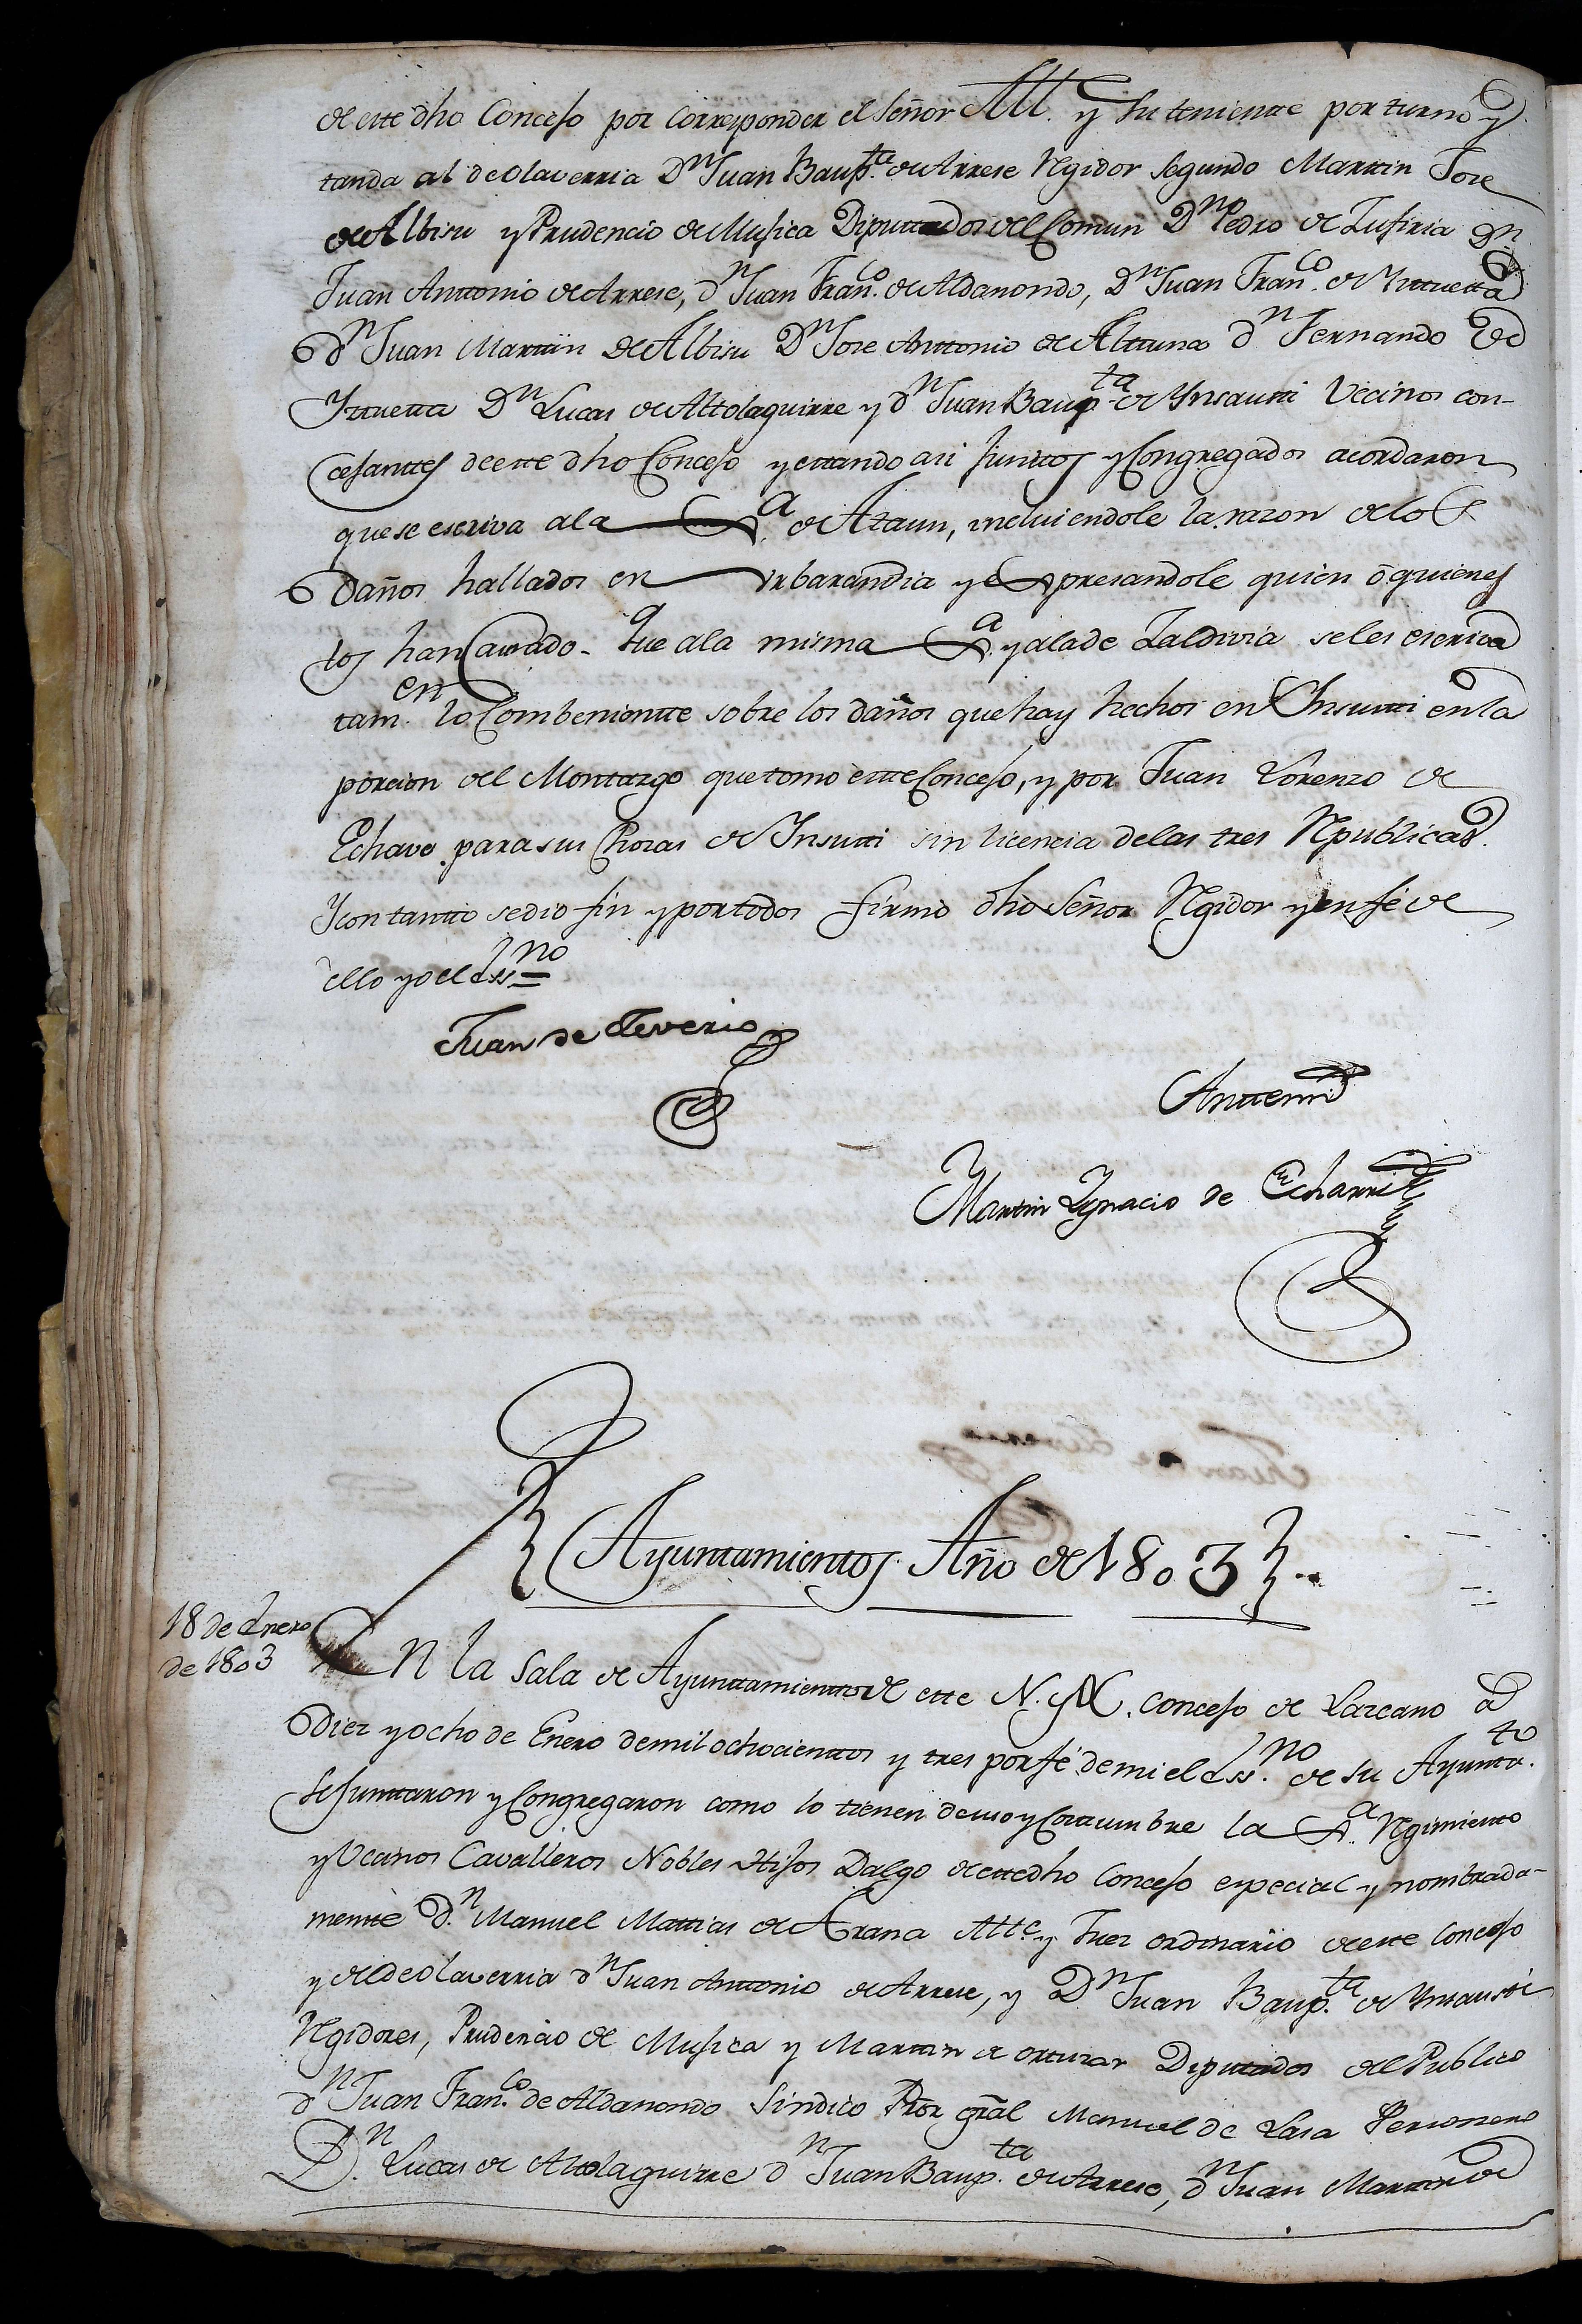 de este dho Concejo por corresponder el Señor All. y su teniente por turno y
tanda al de Olaverria Dn Juan Baupta. de Arrese Rgidor segundo Martin Jose
de Albisu y Prudencio de Mujica Diputtados del Comun Dn Pedro de Zufiria Dn.
Juan Anttonio de Arrese, dn Juan Franco. de Aldanondo, Dn Juan Franco. de Ytturetta
dn Juan Martiin de Albisu Dn Jose Anttonio de Alttuna dn Fernando de
Ytturetta Dn Lucas de Alttolaguirre y dn Juan Baupta. de Ynsautti Vecinos con-
cejanttes de este dho Concejo y estando asi junttos y Congregados acordaron
que se escriva a la Va. de Ataun, incluiendole la razon de los
daños hallados en Urbarandia y expresandole quien ó quienes
los han causado. Que a la misma Va. y a la de Zaldivia se les escriva
tamen. lo Combenientte sobre los daños que hay hechos en Ynsutti en la
porcion del Montazgo que tomo este Concejo, y por Juan Lorenzo de
Echave para sus Chozas de Ynsutti sin licencia de las tres Rpublicas.
Y con tantto se dio fin y por todos firmó dho Señor Rgidor y en fé de
ello yo el Essno =
Juan de Teverio
Antte mi
Martin Ygnacio de Echarri
Ayuntamientos Año de 1803
18 de Enero
de 1803
En la Sala de Ayunttamienttos de este N. y L. Concejo de Lazcano a
diez y ocho de Enero de mil ochocienttos y tres por fé de mi el Essno. de su Ayuntto.
se Junttaron y Congregaron como lo tienen de uso y Costtumbre la Ja. Rgimiento
y Vecinos Cavalleros Nobles Hijos Dalgo de este dho Concejo especial y nombrada-
mente Dn. Manuel Mattias de Arana Altte. y Juez ordinario de este Concejo
y del de Olaverria dn Juan Anttonio de Arrese, y Dn Juan Baupta. de Ynsausti
Rgidores, Prudencio de Mujica y Marttin de ortuzar Diputtados del Publico
dn Juan Franco. de Aldanondo Sindico Pror gral Manuel de Lasa Personero
Dn. Lucas de Altolaguirre dn Juan Baupta. de Arrese, dn Juan Marttin de